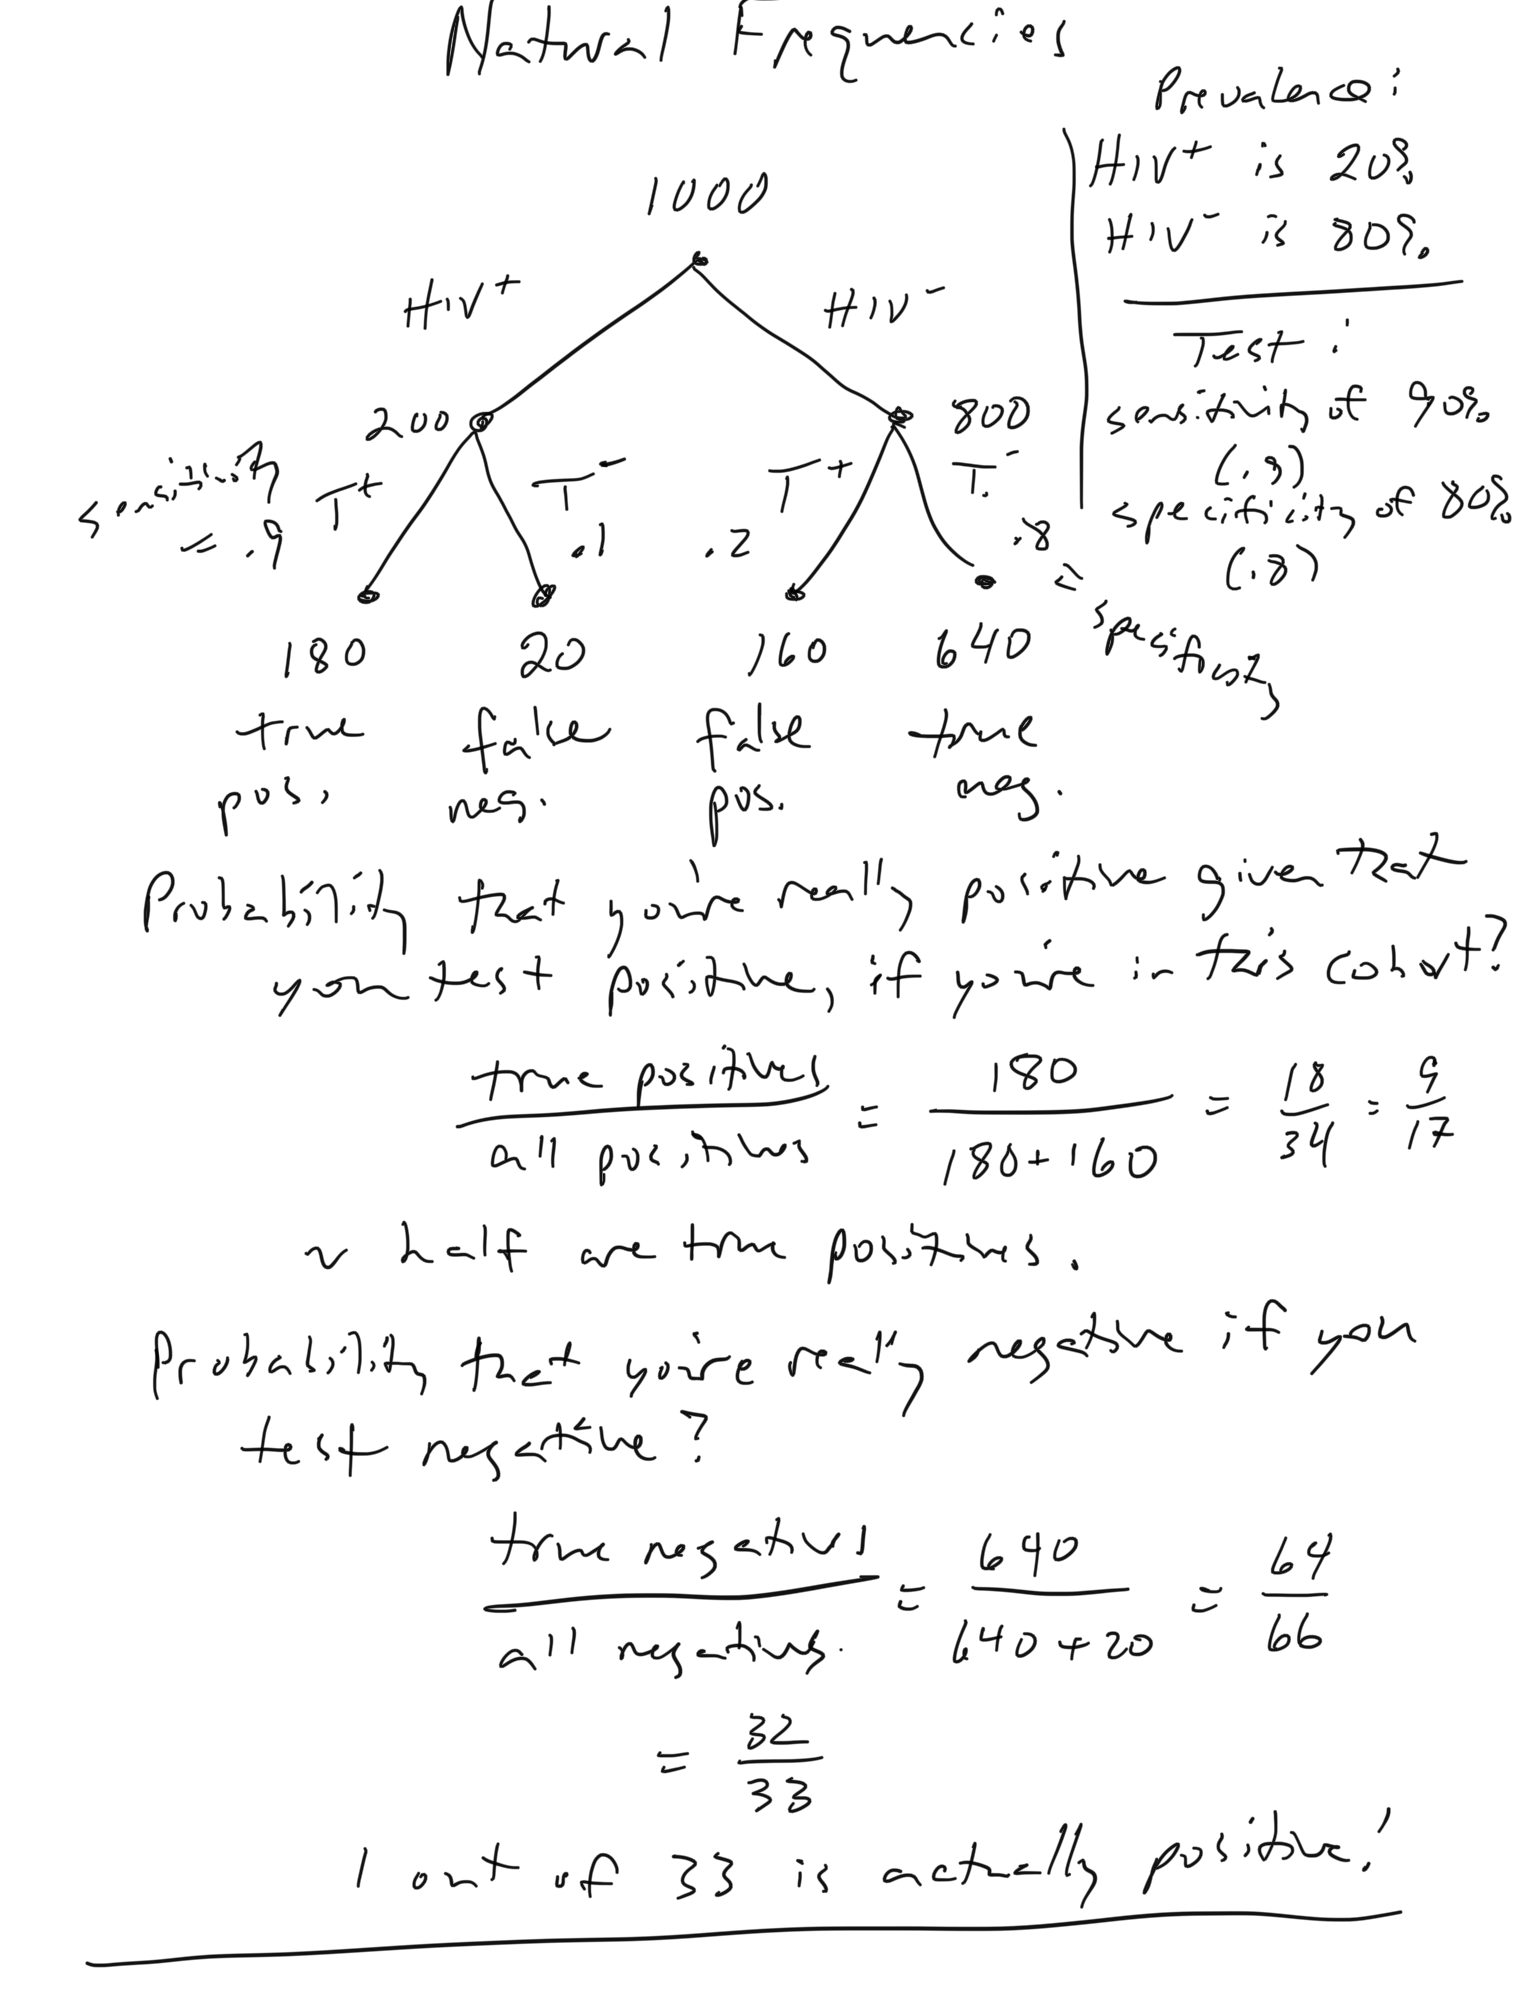 Natural Frequencies
Prevalence:
HIV+ is 20%
HIV- is 80%.
Test:
sensitivity of 90%
(.9)
specificity of 80%
(.8)
1000
HIV+ HIV-
200 800
sensitivity
= .9
T+ T- T+ T-
.1 .2 .8
= specificity
180 20 160 640
true false false true
pos. neg. pos. neg.
Probability that you're really positive given that
you test positive, if you're in this cohort?
true positives / all positives = 180 / 180+160 = 18/34 = 9/17
~ half are true positives.
Probability that you're really negative if you
test negative?
true negatives / all negatives. = 640 / 640+20 = 64/66
= 32/33
1 out of 33 is actually positive!